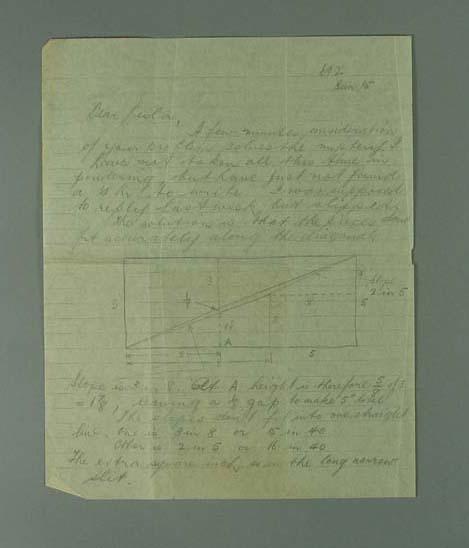 692
Jun 15
Dear
A few minutes consideration
of your problem solves the mystery. I
have not taken all this time in
pondering but have just not found
a to write. I was supposed
to reply last week but slipped.
The solution is that the pieces don't
fit accurately along the diagonal.
3
3
5
A
5
8
5
Slope
2 in 5
Slope is 3 in 8. At A height is therefore 5/8 of 3
= 1 7/8 leaving a 1/8 gap to make 5" total
The slopes don't fit into one straight
line. One is 3 in 8 or 15 in 40
Other is 2 in 5 or 16 in 40
The extra square inch is in the long narrow
slit.